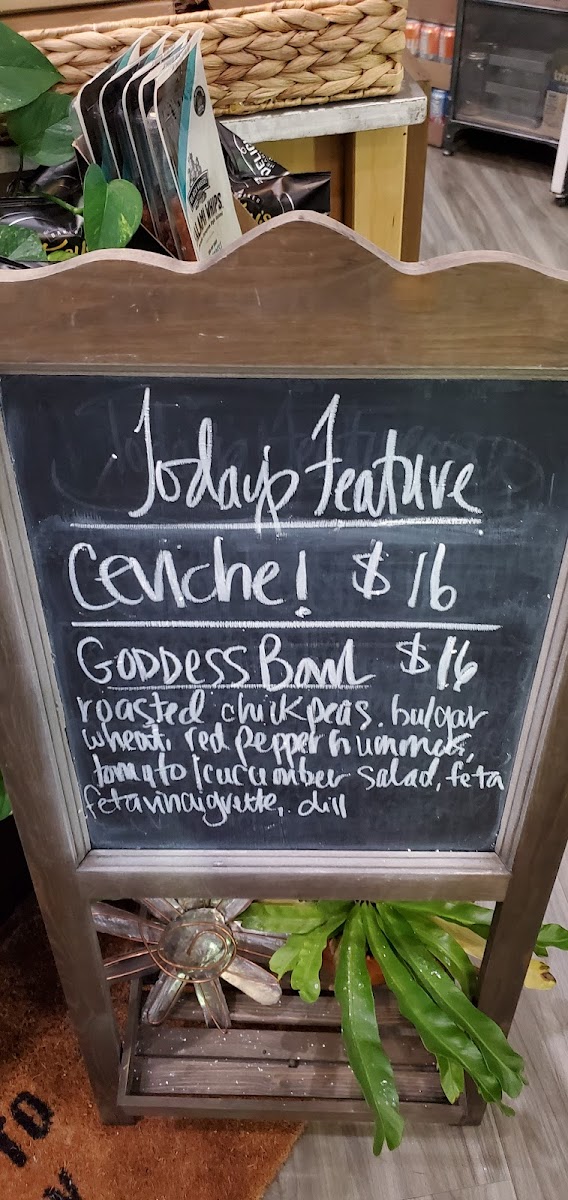 Today's Feature
Ceviche! $16
GODDESS Bowl $16
roasted chickpeas, bulgar
wheat, red pepper hummus,
tomato/cucumber salad, feta
feta vinaigrette, dill